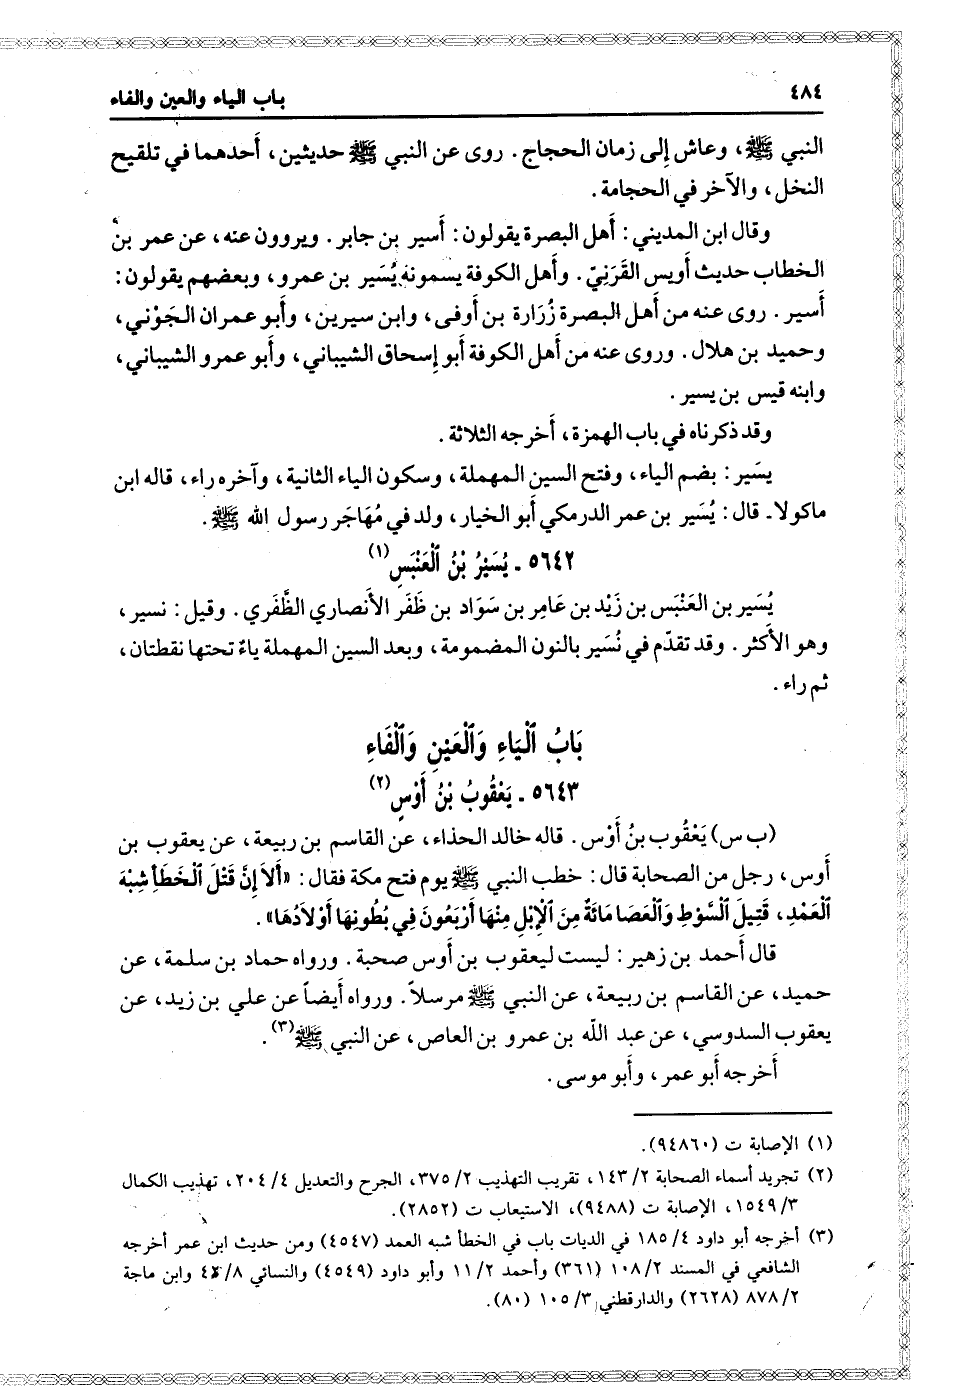 ٤٨٤
باب الياء والعين والفاء
النبي ﷺ، وعاش إلى زمان الحجاج. روى عن النبي ﷺ حديثين، أحدهما في تلقيح
النخل، والآخر في الحجامة.
وقال ابن المديني: أهل البصرة يقولون: أسير بن جابر. ويروون عنه، عن عمر بن
الخطاب حديث أويس القَرَنِيّ. وأهل الكوفة يسمونه يُسَير بن عمرو، وبعضهم يقولون:
أسير. روى عنه من أهل البصرة زُرَارة بن أوفى، وابن سيرين، وأبو عمران الجَوْني،
وحميد بن هلال. وروى عنه من أهل الكوفة أبو إسحاق الشيباني، وأبو عمرو الشيباني،
وابنه قيس بن يسير.
وقد ذكرناه في باب الهمزة، أخرجه الثلاثة.
يسَير: بضم الياء، وفتح السين المهملة، وسكون الياء الثانية، وآخره راء، قاله ابن
ماكولا۔ قال: يُسَير بن عمر الدرمكي أبو الخيار، ولد في مُهَاجَر رسول الله ﷺ.
٥٦٤٢ ـ يُسَيْرُ بْنُ ٱلْعَنْبَسِ(١)
يُسَير بن العَنْبَس بن زَيْد بن عَامِر بن سَوَاد بن ظَفَر الأنصاري الظَّفَري. وقيل: نسير،
وهو الأكثر. وقد تقدّم في نُسَير بالنون المضمومة، وبعد السين المهملة ياءٌ تحتها نقطتان،
ثم راء.
بَابُ ٱلْيَاءِ وَٱلْعَيْنِ وَٱلْفَاءِ
٥٦٤٣ ـ يَعْقُوبُ بْنُ أَوْسٍ(٢)
(ب س) يَعْقُوب بنُ أَوْس. قاله خالد الحذاء، عن القاسم بن ربيعة، عن يعقوب بن
أوس، رجل من الصحابة قال: خطب النبي ﷺ يوم فتح مكة فقال: «أَلاَ إِنَّ قَتْلَ ٱلْخَطَأِ شِبْهَ
ٱلْعَمْدِ، قَتِيلَ ٱلسَّوْطِ وَٱلْعَصَا مَائَةٌ مِنَ ٱلْإِبْلِ مِنْهَا أَرْبَعُونَ فِي بُطُونِهَا أَوْلاَدُهَا».
قال أحمد بن زهير: ليست ليعقوب بن أوس صحبة. ورواه حماد بن سلمة، عن
حميد، عن القاسم بن ربيعة، عن النبي ﷺ مرسلاً. ورواه أيضاً عن علي بن زيد، عن
يعقوب السدوسي، عن عبد الله بن عمرو بن العاص، عن النبي ﷺ(٣).
أخرجه أبو عمر، وأبو موسى.
(١) الإصابة ت (٩٤٨٦٠).
(٢) تجريد أسماء الصحابة ٢/ ١٤٣، تقريب التهذيب ٢/ ٣٧٥، الجرح والتعديل ٤/ ٢٠٤، تهذيب الكمال
٣/ ١٥٤٩، الإصابة ت (٩٤٨٨)، الاستيعاب ت (٢٨٥٢).
(٣) أخرجه أبو داود ٤/ ١٨٥ في الديات باب في الخطأ شبه العمد (٤٥٤٧) ومن حديث ابن عمر أخرجه
الشافعي في المسند ٢/ ١٠٨ (٣٦١) وأحمد ٢/ ١١ وأبو داود (٤٥٤٩) والنسائي ٨/ وابن ماجة
٢/ ٨٧٨ (٢٦٢٨) والدارقطني ٣/ ١٠٥ (٨٠).